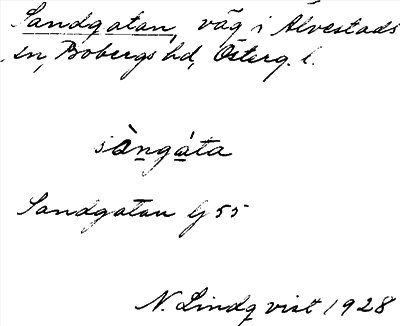 Sandgatan, väg i Älvestads
sn, Bobergs hd, Österg. l.
sàngáta
Sandgatan Lj 55
N. Lindqvist 1928